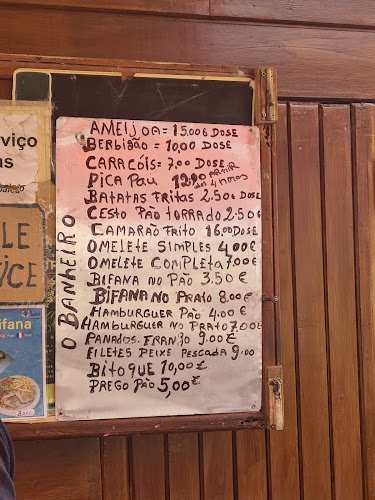 rviço
as
LE
VICE
ifana
O BANHEIRO
AMEIJOA = 15.00€ DOSE
BERBIGÃO = 10,00 DOSE
CARACÓIS = 7.00 DOSE
PICA PAU 12.00 A PARTIR das 4 horas
BATATAS FRITAS 2.50€ DOSE
CESTO PÃO TORRADO 2.50€
CAMARÃO FRITO 16.00 DOSE
OMELETE SIMPLES 4,00€
OMELETE COMPLETA 7,00€
BIFANA NO PÃO 3.50€
BIFANA NO PRATO 8.00€
HAMBURGUER PÃO 4.00€
HAMBURGUER NO PRATO 7,00€
PANADOS. FRANGO 9.00€
FILETES PEIXE PESCADA 9.00
BITOQUE 10,00€
PREGO PÃO 5,00€